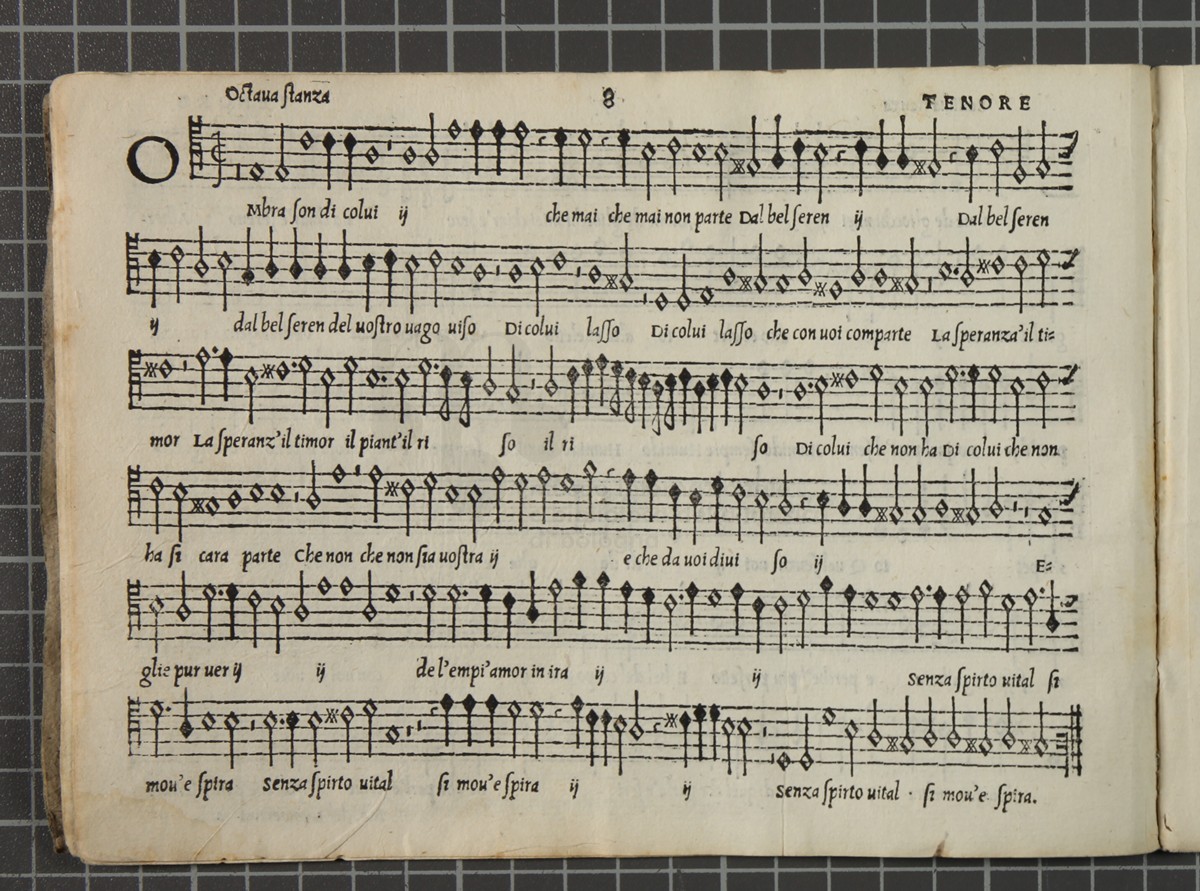 Octaua stanza 8 TENORE
OMbra son di colui ij che mai che mai non parte Dal bel seren ij Dal bel seren
ij dal bel seren del uostro uago uiso Di colui lasso Di colui lasso che con uoi comparte La speranza'il ti=
mor La speranz'il timor il piant'il ri so il ri so Di colui che non ha Di colui che non
ha si cara parte Che non che non sia uostra ij e che da uoi diui so ij E=
glie pur uer ij ij de l'empi'amor in ira ij ij Senza spirto uital si
mou'e spira Senza spirto uital si mou'e spira ij ij Senza spirto uital si mou'e spira.